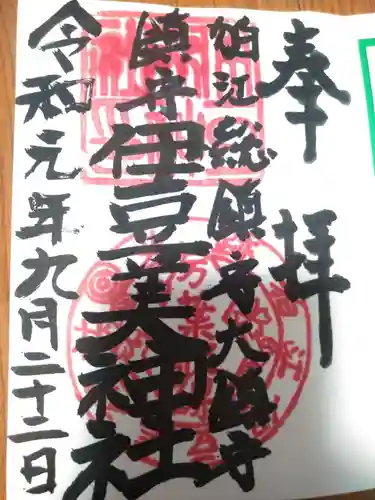 奉拝
狛江総鎮守大鎮守
鎮守伊豆美神社
令和元年九月二十二日